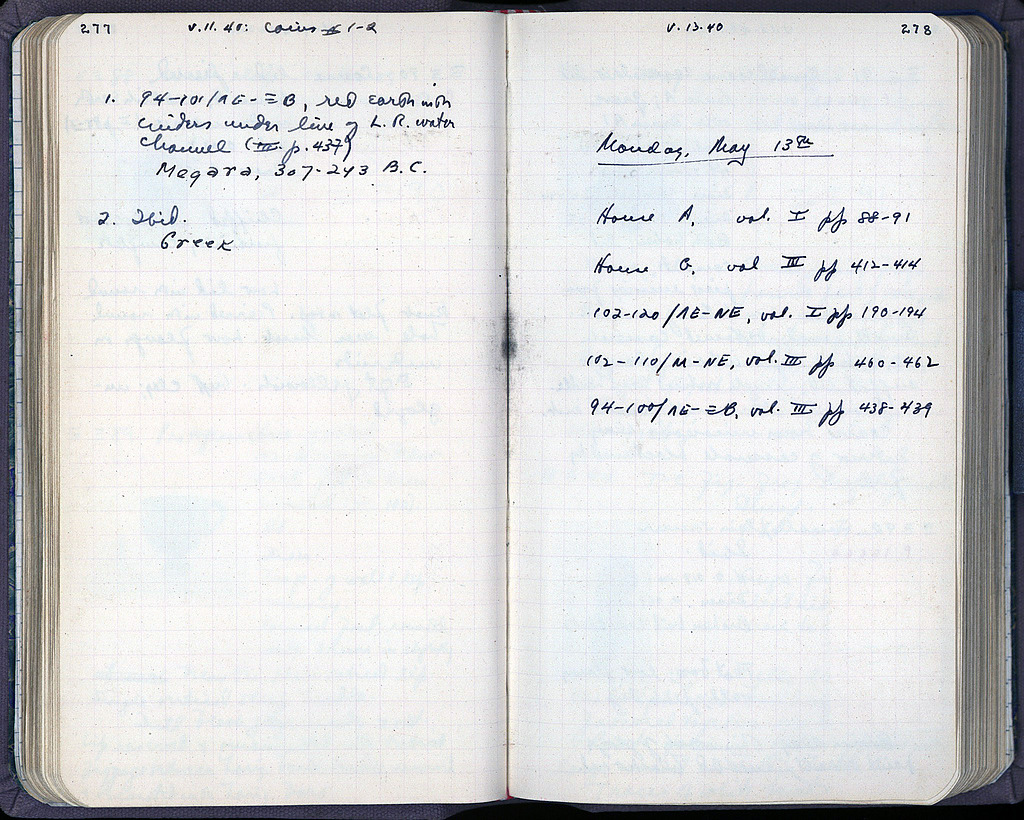 277
V.11.40: Coins 1-2
1. 94-101/ΛΕ-ΞΒ, red earth with
cinders under line of L.R. water
channel (III p. 437)
Megara, 307-243 B.C.
2. Ibid.
Greek
V.13.40
278
Monday, May 13th
House A, vol. I pp 88-91
House G, vol III pp 412-414
102-120/ΛΕ-ΝΕ, vol. I pp 190-194
102-110/Μ-ΝΕ, vol. III pp 460-462
94-100/ΛΕ-ΞΒ, vol. III pp 438-439